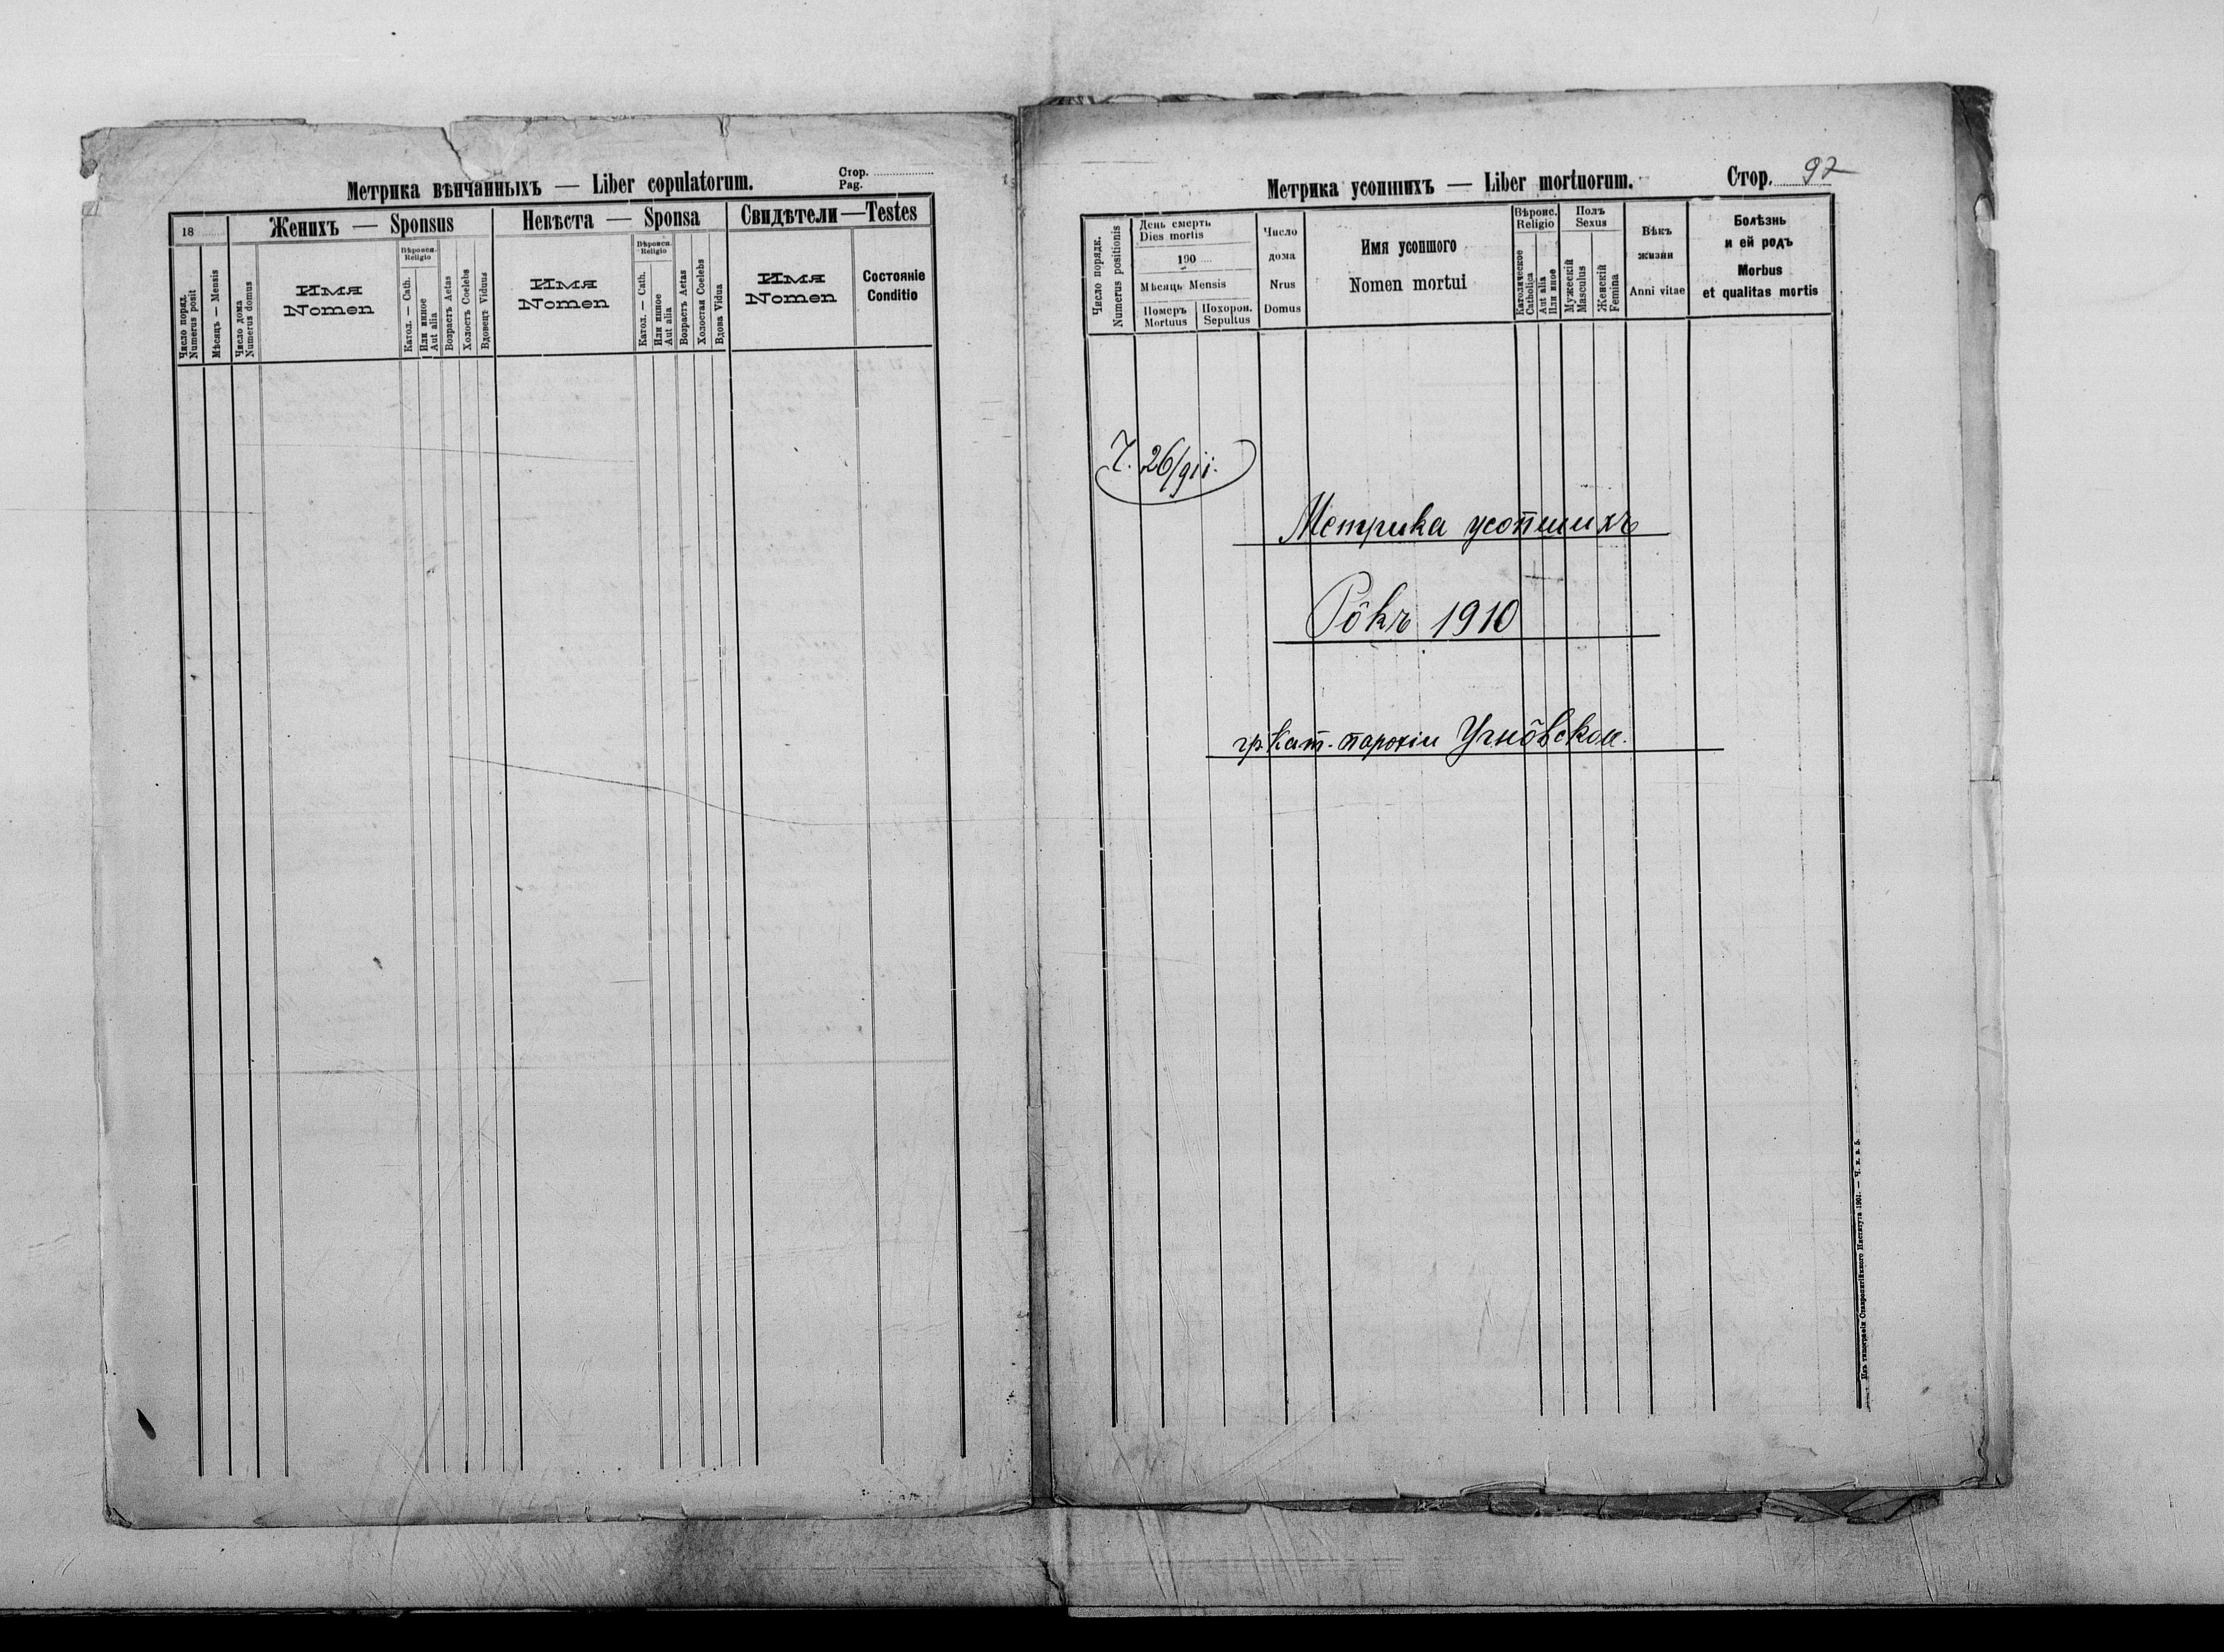 Метрика вѣнчанныхъ — Liber copulatorum.
Стор.
Pag.
18
Женихъ — Sponsus
Невѣста — Sponsa
Свидѣтели—Testes
Число поряд.
Numerus posit
Мѣсяць — Mensis
Число дома
Numerus domus
Имя
Nomen
Вѣроисп.
Religio
Катол. — Cath.
Или инное
Aut alia
Возрастъ Aetas
Холостъ Coelebs
Вдовецъ Viduus
Имя
Nomen
Вѣроисп.
Religio
Катол. — Cath.
Или инное
Aut alia
Возрастъ Aetas
Холостая Coelebs
Вдова Vidua
Имя
Nomen
Состояніе
Conditio
Метрика усопшихъ — Liber mortuorum.
Стор. 97
Число порядк.
Numerus positionis
День смерть
Dies mortis
190
Мѣсяць Mensis
Померъ
Mortuus
Похорон.
Sepultus
Число
дома
Nrus
Domus
Имя усопшого
Nomen mortui
Вѣроис.
Religio
Католическое
Catholica
Aut alia
Или иное
Полъ
Sexus
Мужескій
Masculus
Женскій
Femina
Вѣкъ
жизни
Anni vitae
Болѣзнь
и ей родъ
Morbus
et qualitas mortis
Ч. 26/911.
Метрика усопшихъ
Рôкъ 1910
гр. кат. парохіи Угнôвскои.
Изъ типографіи Ставропигійского Института 1901. — Ч. к. а. 5.